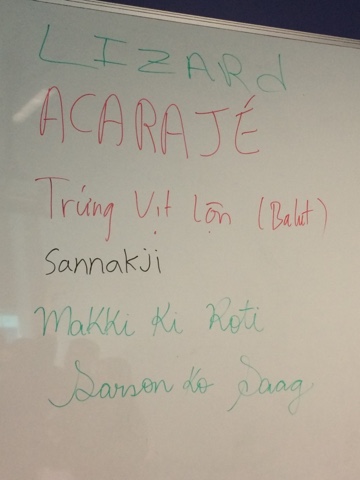 LIZARd
ACARAJÉ
Trứng Vịt Lộn (Balut)
Sannakji
Makki Ki Roti
Sarson Ko Saag